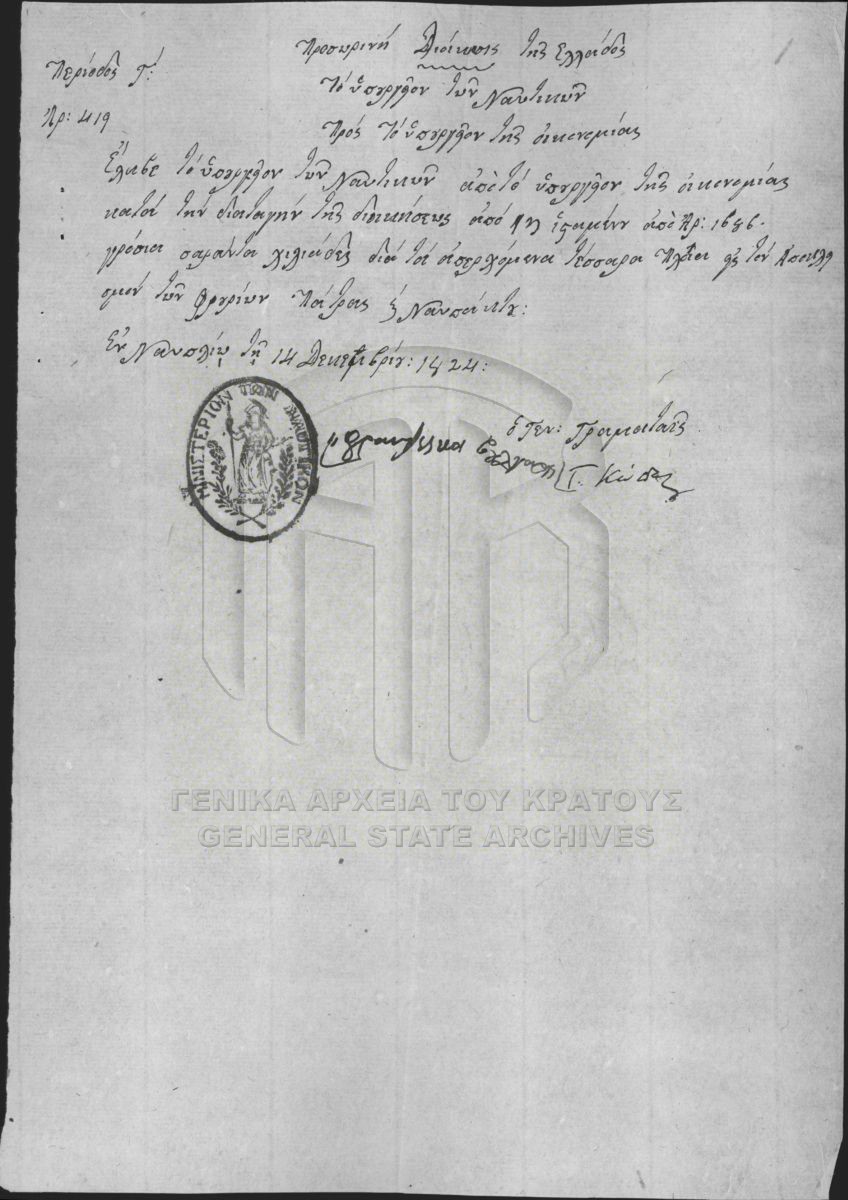 Προσωρινή Διοίκησις της Ελλάδος
Περίοδος Γ΄:
Το υπουργείον των Ναυτικών
Αρ: 419
Προς το υπουργείον της οικονομίας
Έλαβε το υπουργείον των Ναυτικών από το υπουργείον της οικονομίας
κατά την διαταγήν της διοικήσεως από υπ' Αρ: 1686.
γρόσια σαράντα χιλιάδες διά τα απερχόμενα τέσσαρα πλοία εις τον Αποκλει
σμόν των φρουρίων Πάτρας και Ναυπάκτου:
Εν Ναυπλίω τη 14 Δεκεμβρίου: 1824:
ΜΙΝΙΣΤΕΡΙΟΝ ΤΩΝ ΝΑΥΤΙΚΩΝ
ο Γεν: Γραμματεύς
ΓΕΝΙΚΑ ΑΡΧΕΙΑ ΤΟΥ ΚΡΑΤΟΥΣ
GENERAL STATE ARCHIVES